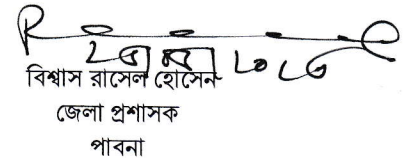 বিশ্বাস রাসেল হোসেন
জেলা প্রশাসক
পাবনা